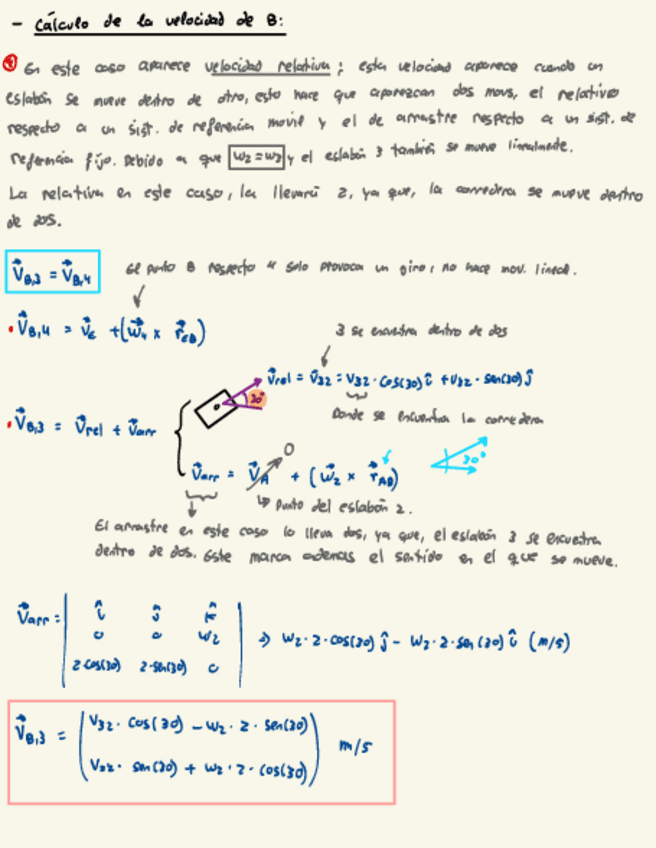 - Cálculo de la velocidad de B:
En este caso aparece velocidad relativa; esta velocidad aparece cuando un
eslabón se mueve dentro de otro, esto hace que aparezcan dos movs, el relativo
respecto a un sist. de referencia movil y el de arrastre respecto a un sist. de
referencia fijo. Debido a que w₂ = w₃ y el eslabón 3 también se mueve linealmente.
La relativa en este caso, la llevará 2, ya que, la corredera se mueve dentro
de dos.
V⃗B,3 = V⃗B,4
El punto B respecto 4 solo provoca un giro, no hace mov. lineal.
• V⃗B,4 = V⃗E + (w⃗4 x r⃗EB)
3 se encuentra dentro de dos
V⃗rel = V⃗32 = V32 · cos(30) î + V32 · sen(30) ĵ
30°
Donde se encuentra la corredera
• V⃗B,3 = V⃗rel + V⃗arr
V⃗arr = V⃗A 0 + (w⃗2 x r⃗AB)
30°
Punto del eslabón 2.
El arrastre en este caso lo lleva dos, ya que, el eslabón 3 se encuentra
dentro de dos. Este marca además el sentido en el que se mueve.
V⃗arr = | î ĵ k̂ |
| 0 0 w2 |
| 2·cos(30) 2·sen(30) 0 |
⇒ w2 · 2 · cos(30) ĵ - w2 · 2 · sen(30) î (m/s)
V⃗B,3 = ( V32 · cos(30) - w2 · 2 · sen(30) )
( V32 · sen(30) + w2 · 2 · cos(30) ) m/s